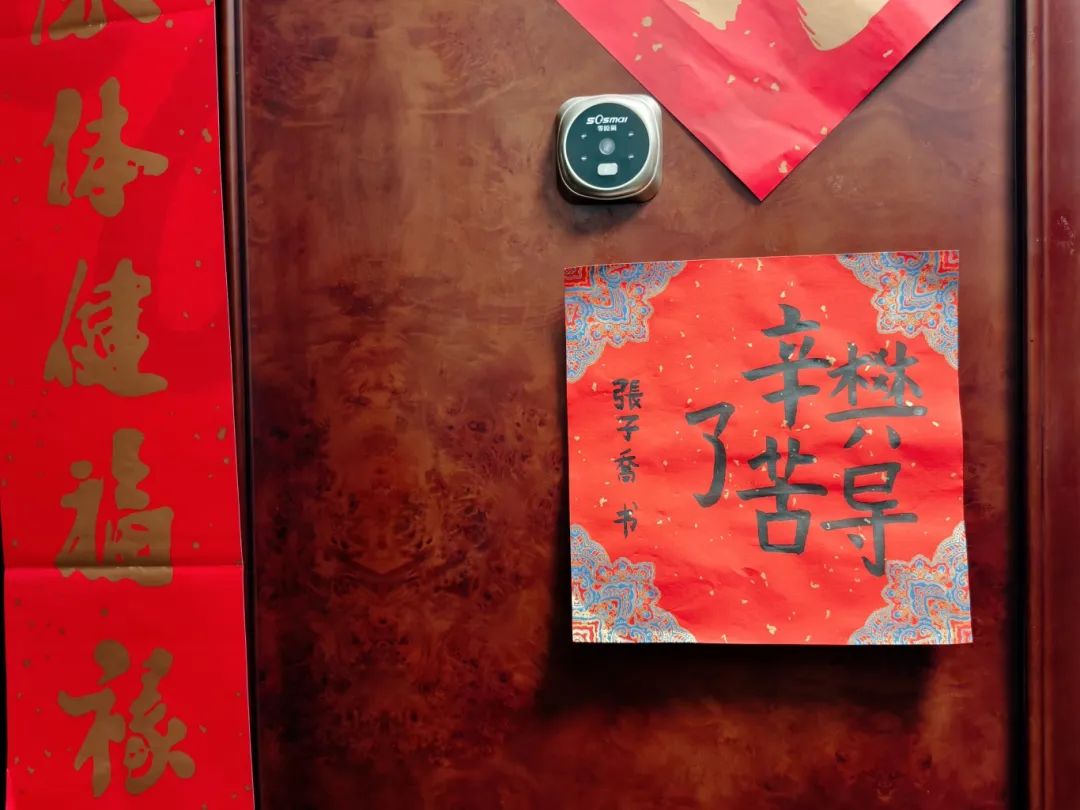 体健福禄
sosmai
樊导
辛苦
了
張子喬 书